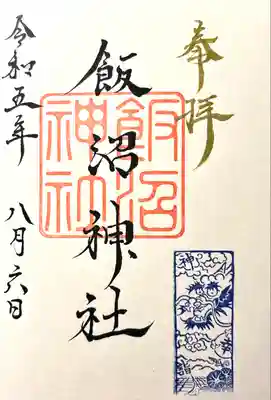 奉拝
飯沼神社
飯沼
神社
令和五年 八月六日